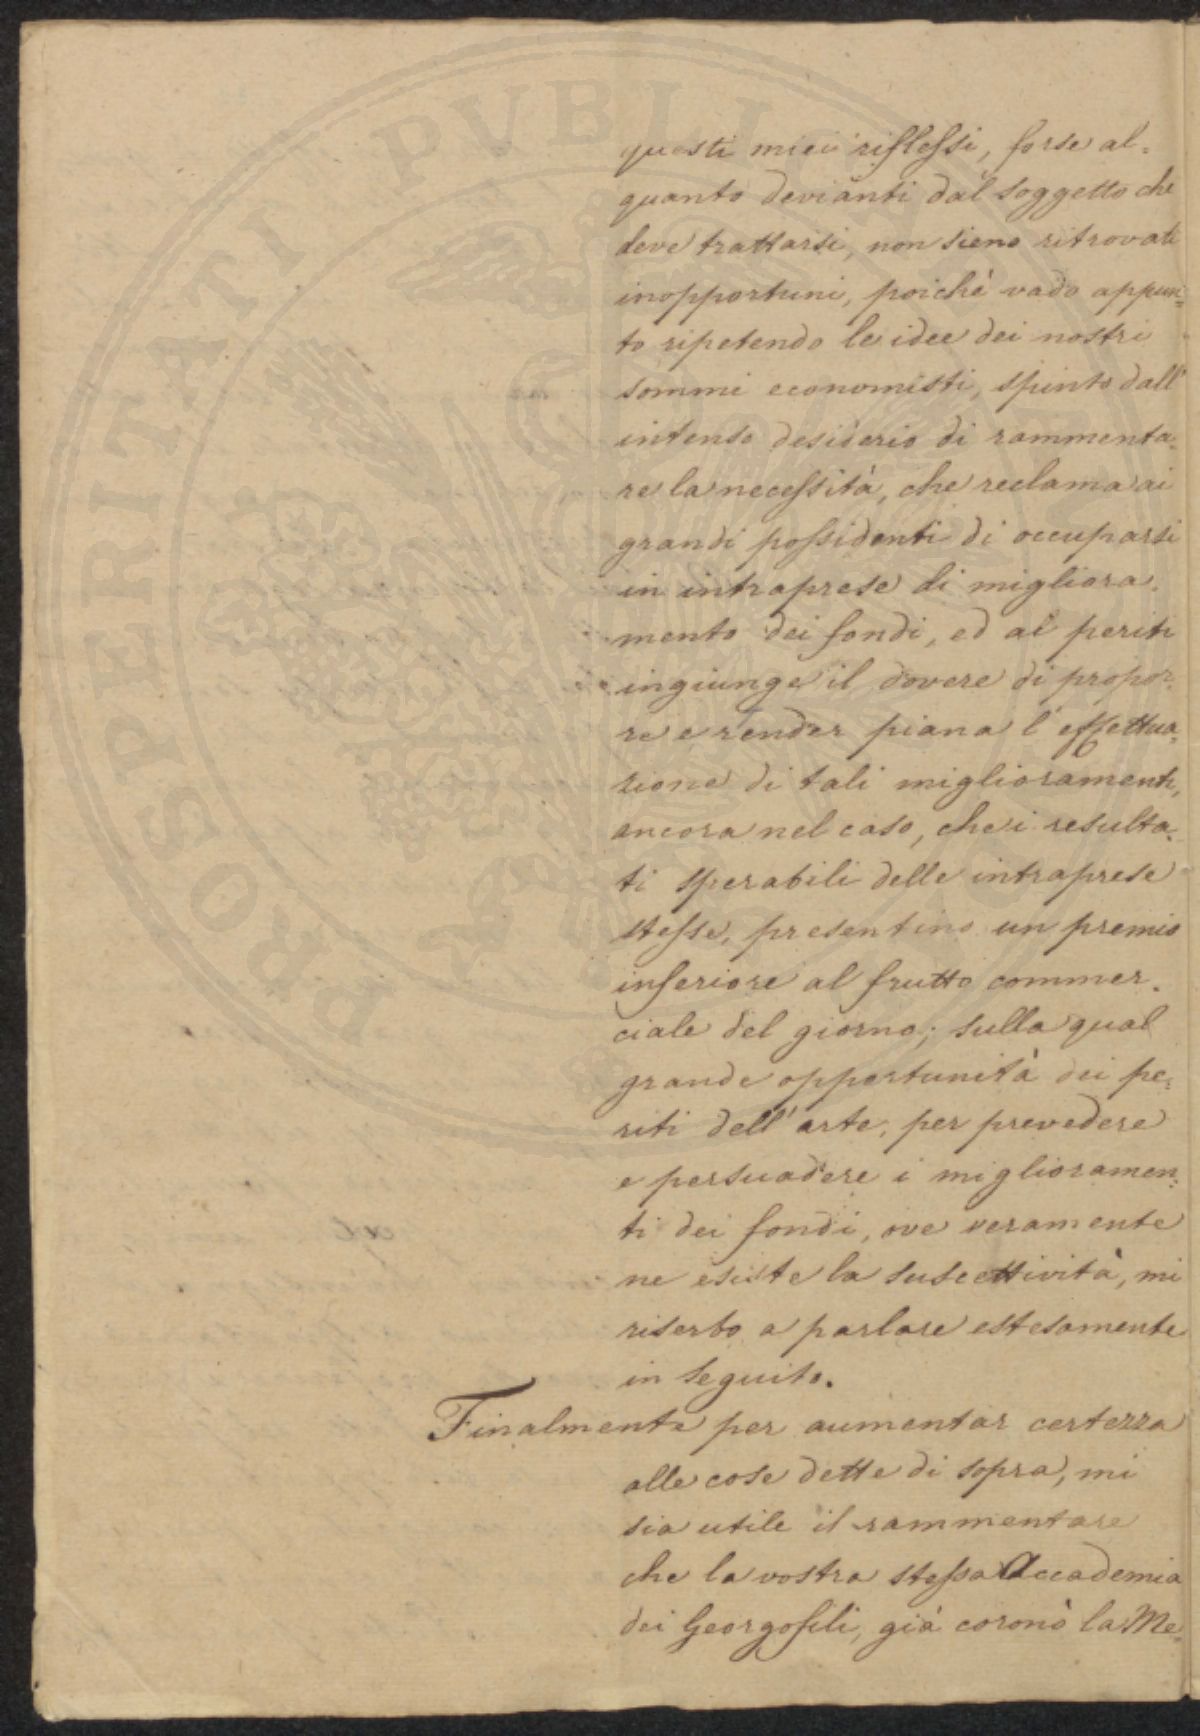 PROSPERITATI PUBLICAE
questi miei riflessi, forse al=
quanto devianti dal soggetto che
deve trattarsi, non sieno ritrovati
inopportuni, poichè vado appun=
to ripetendo le idee dei nostri
sommi economisti, spinto dall'
intenso desiderio di rammenta=
re la necessità, che reclama ai
grandi possidenti di occuparsi
in intraprese di migliora=
mento dei fondi, ed ai periti
ingiunge il dovere di propor=
re e render piana l'effettua=
zione di tali miglioramenti,
ancora nel caso, che i resulta=
ti sperabili delle intraprese
stesse, presentino un premio
inferiore al frutto commer=
ciale del giorno; sulla qual
grande opportunità dei pe=
riti dell'arte, per prevedere
e persuadere i miglioramen=
ti dei fondi, ove veramente
ne esiste la suscettività, mi
riserbo a parlare estesamente
in seguito.
Finalmente per aumentar certezza
alle cose dette di sopra, mi
sia utile il rammentare
che la vostra stessa Accademia
dei Georgofili, già coronò la Me=